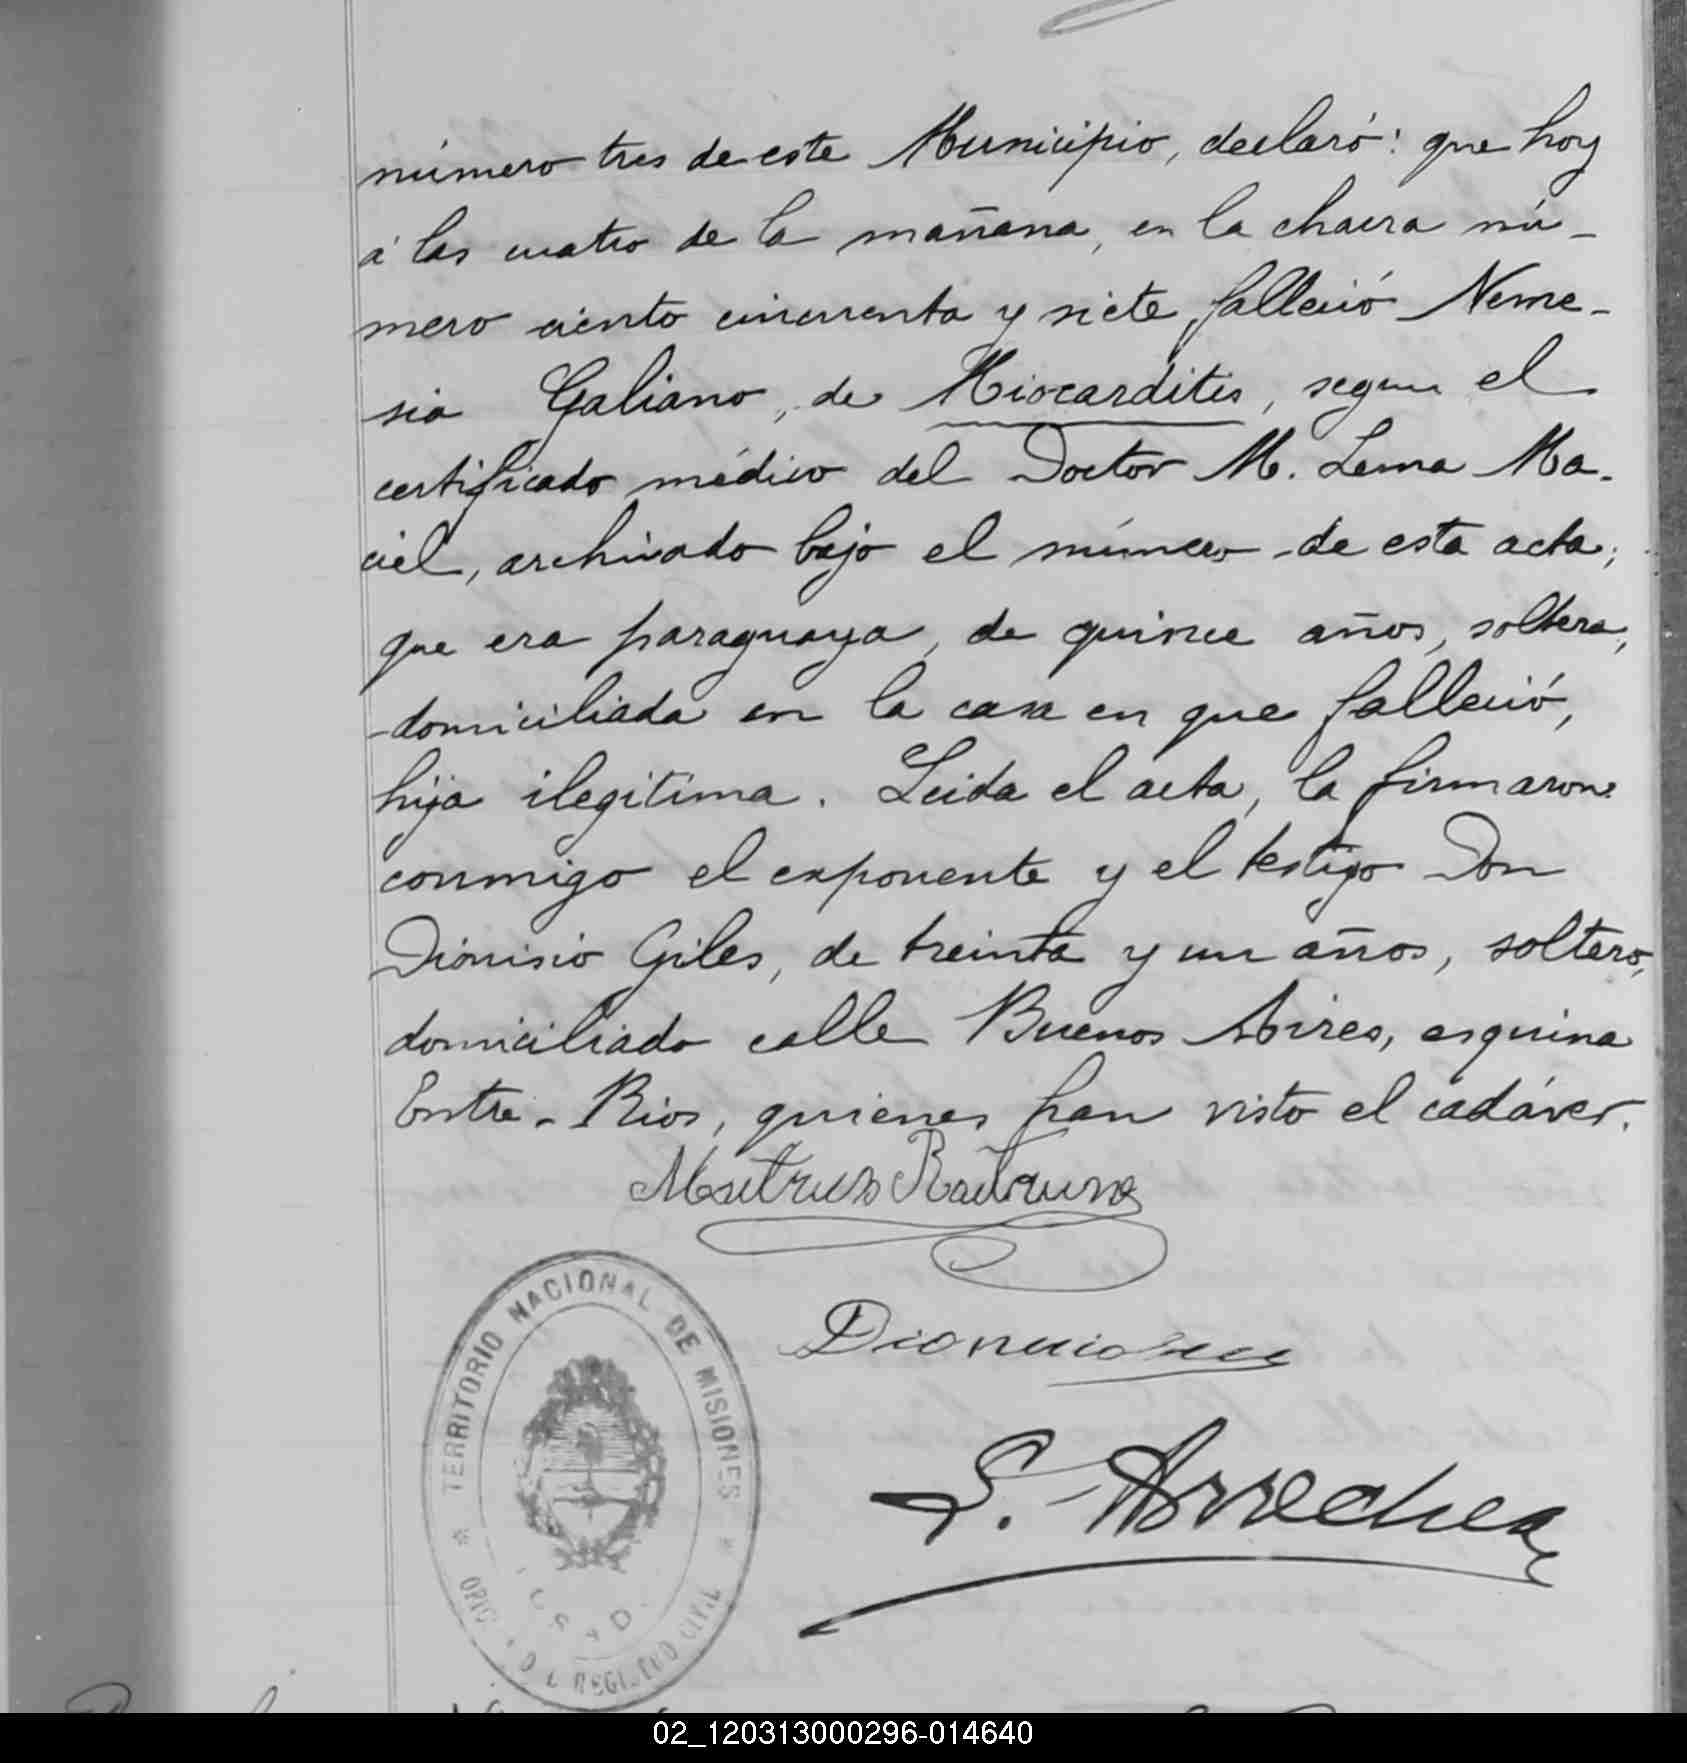 número tres de este Municipio, declaró: que hoy
á las cuatro de la mañana, en la chacra nú-
mero ciento cincuenta y siete, falleció Neme-
sia Galiano, de Miocarditis, segun el
certificado médico del Doctor M. Lema Ma-
ciel, archivado bajo el número de esta acta;
que era paraguaya, de quince años, soltera,
domiciliada en la casa en que falleció,
hija ilegitima. Leida el acta, la firmaron
conmigo el exponente y el testigo Don
Dionisio Giles, de treinta y un años, soltero,
domiciliado calle Buenos Aires, esquina
Entre-Rios, quienes han visto el cadáver.
S. Arrechea
TERRITORIO NACIONAL DE MISIONES
REGISTRO CIVIL
02_120313000296-014640